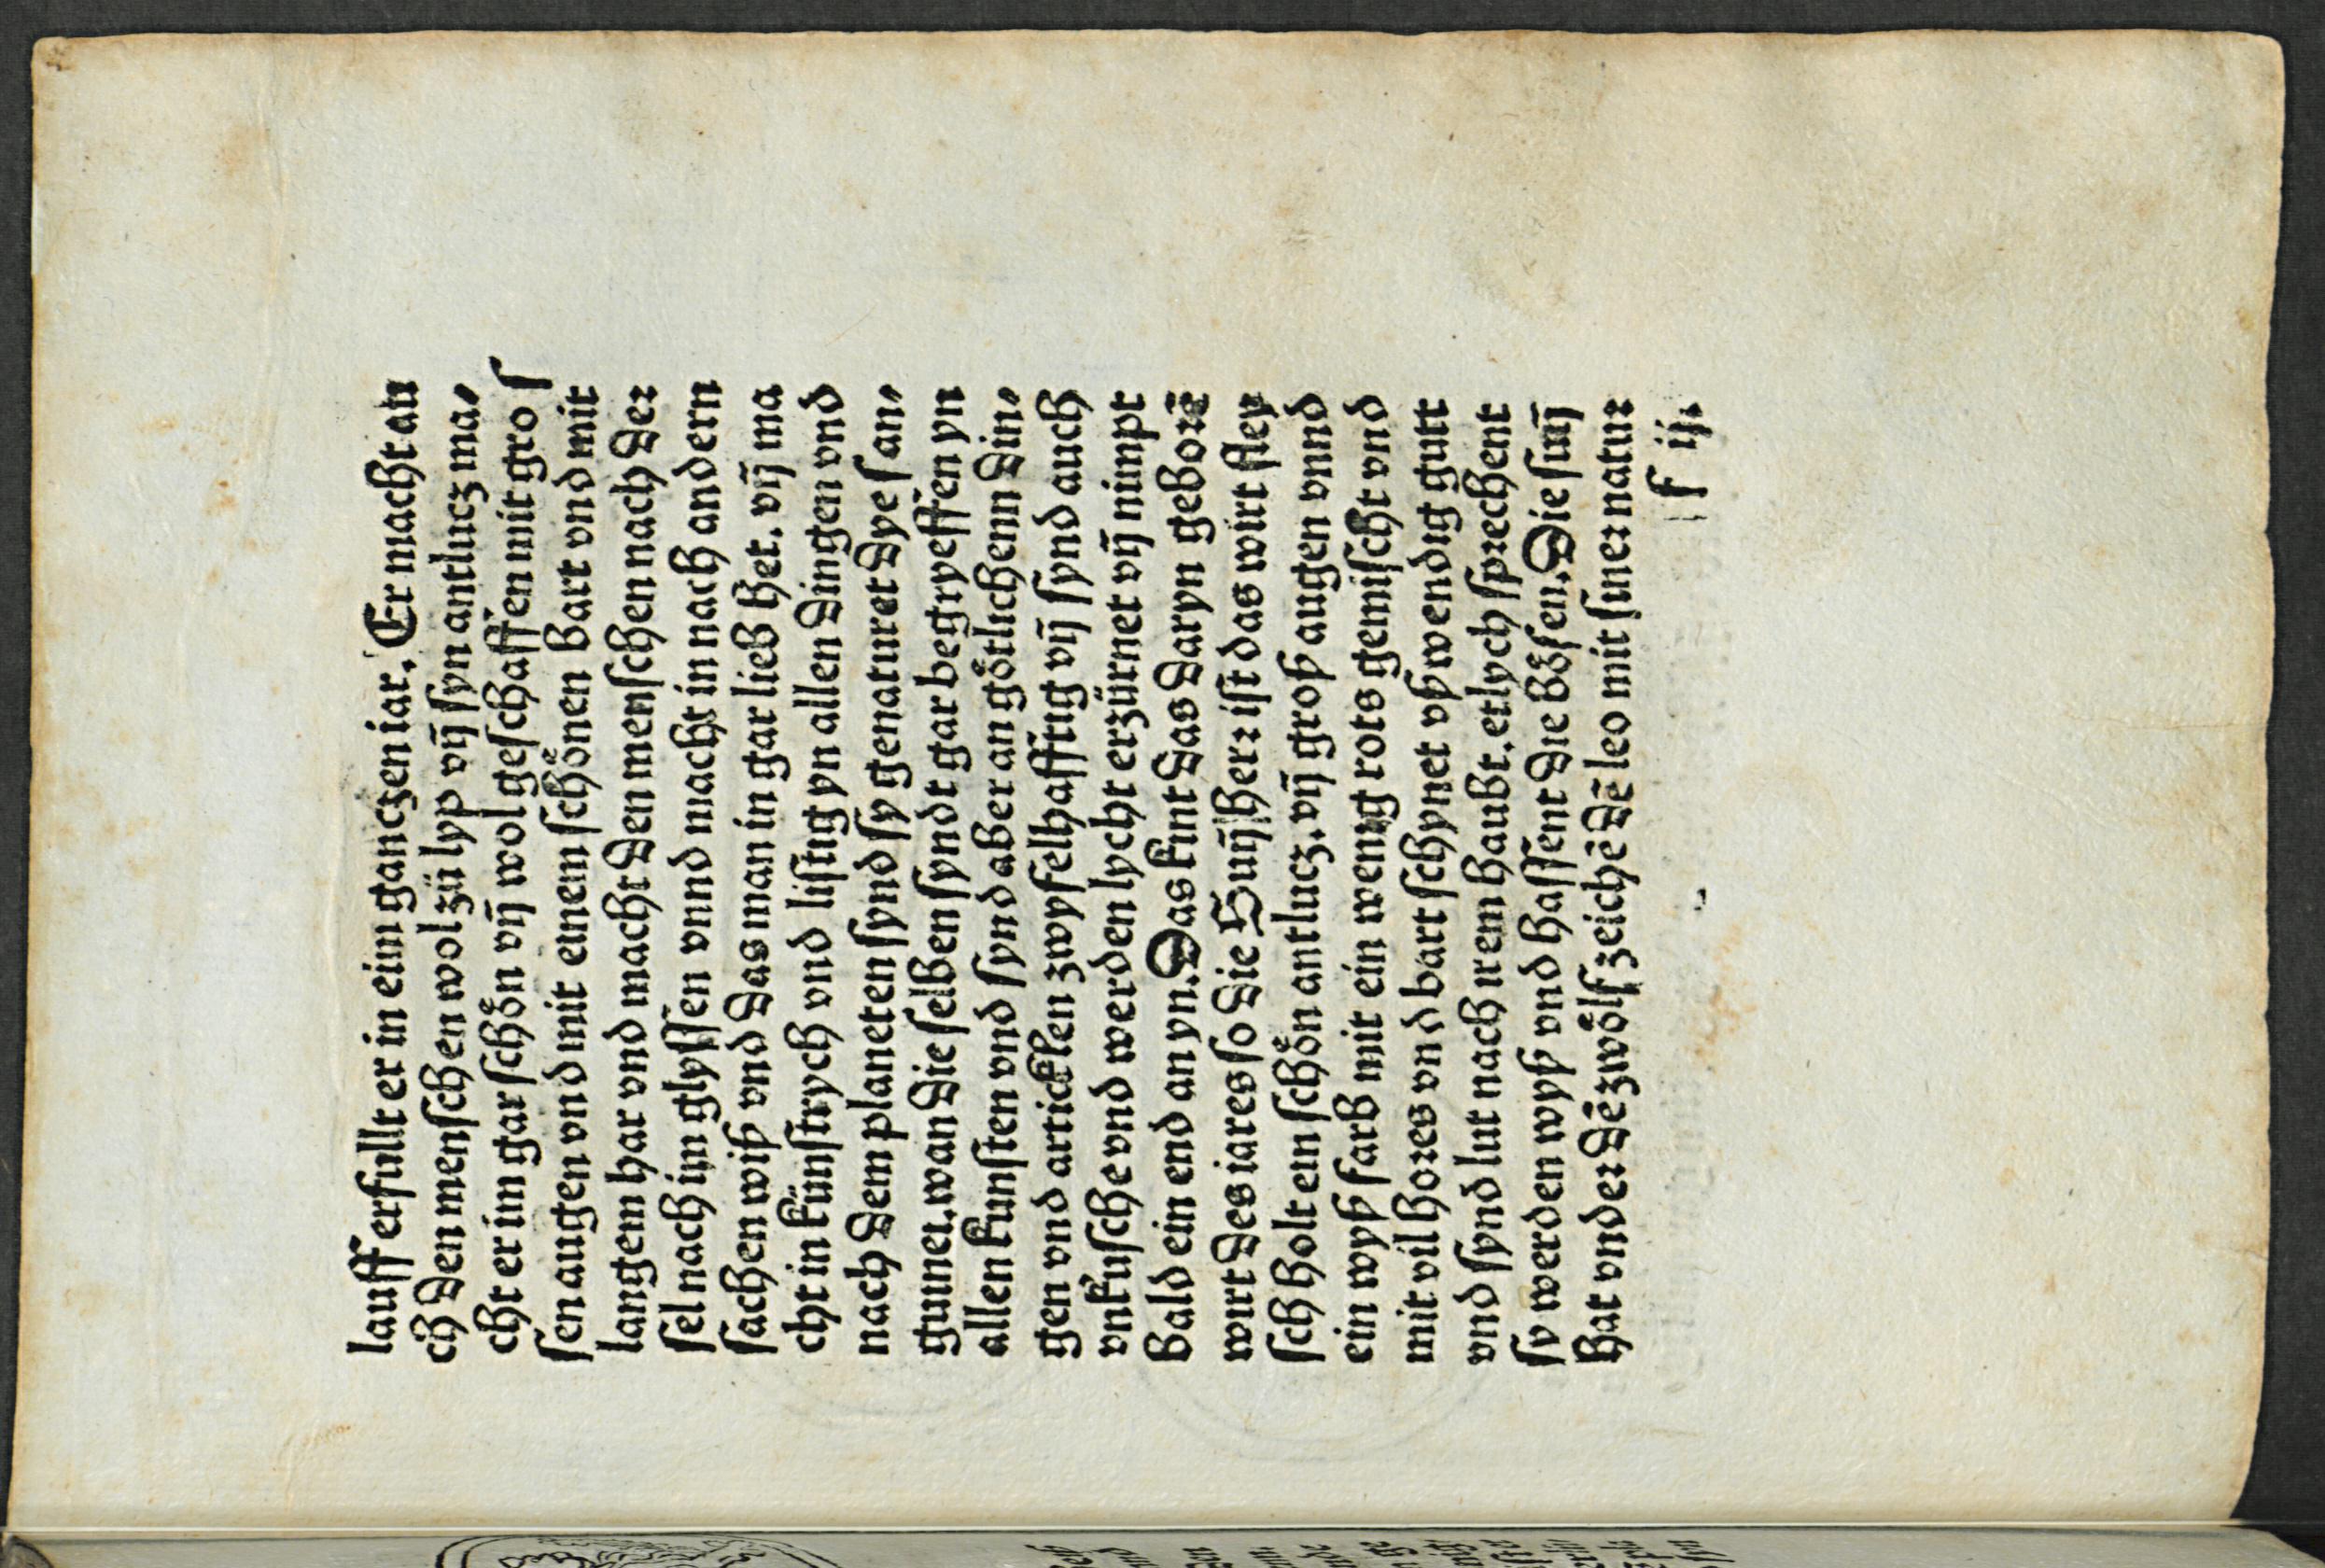 lauff erfullt er in eim ganczen iar. Er macht au
ch den menschen wol zů lyp vñ syn antlucz ma⸗
cht er im gar schön vñ wol geschaffen mit gros
sen augen vnd mit einem schönen bart vnd mit
langem har vnd macht den menschen nach der
sel nach im glyssen vnnd macht in nach andern
sachen wiß vnd das man in gar lieb het. vñ ma
cht in künstrych vnd listig yn allen dingen vnd
nach dem planeten synd sy genaturet dye san⸗
guinei. wan die selben syndt gar begryeffen yn
allen kunsten vnd synd aber an götlichenn din⸗
gen vnd articklen zwyfelhafftig vñ synd auch
vnkusche vnd werden lycht erzürnet vñ nimpt
bald ein end an yn. Das kint das daryn geborē
wirt des iares so die Suñ herr ist das wirt fley
sch holt ein schön antlucz. vñ groß augen vnnd
ein wyß farb mit ein wenig rots gemischt vnd
mit vil hores vnd bart schynet vßwendig gutt
vnd synd lut nach irem haubt. etlych sprechent
sy werden wyß vnd hassent die bösen. Die suñ
hat vnder dē zwölf zeichē dē leo mit siner natur
f ij.